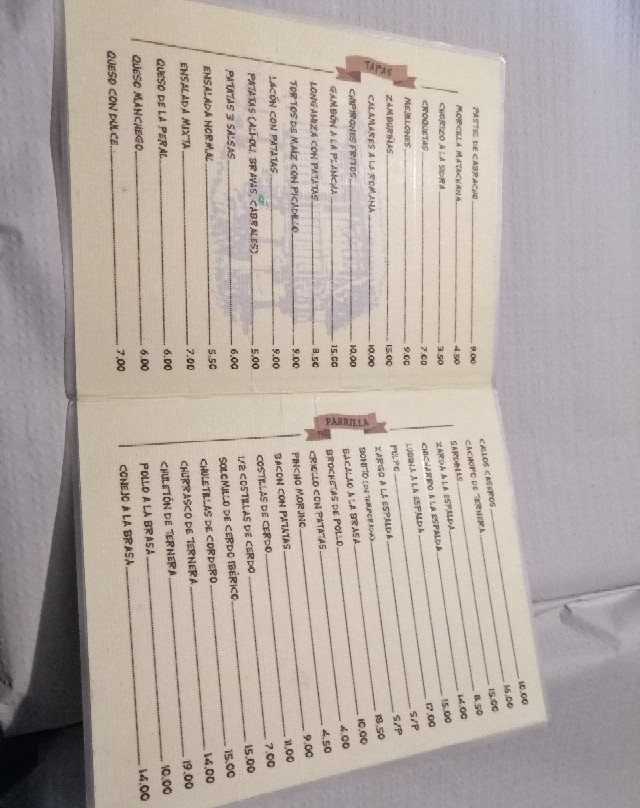 TAPAS
PASTEL DE CABRACHO 9.00
MORCILLA MATACHANA 4.50
CHORIZO A LA SIDRA 3.50
CROQUETAS 7.00
MEJILLONES 9.00
ZAMBURIÑAS 15.00
CALAMARES A LA ROMANA 10.00
CHIPIRONES FRITOS 10.00
GAMBÓN A LA PLANCHA 15.00
LONGANIZA CON PATATAS 8.50
TORTOS DE MAÍZ CON PICADILLO 9.00
LACÓN CON PATATAS 9.00
PATATAS (ALI-OLI, BRAVAS, CABRALES) 5.00
PATATAS 3 SALSAS 6.00
ENSALADA NORMAL 5.50
ENSALADA MIXTA 7.00
QUESO DE LA PERAL 6.00
QUESO MANCHEGO 6.00
QUESO CON DULCE 7.00
PARRILLA
CALLOS CASEROS 10.00
CACHOPO DE TERNERA 16.00
SARDINAS 15.00
XARDA A LA ESPALDA 8.50
CHICHARRO A LA ESPALDA 14.00
LUBINA A LA ESPALDA 15.00
PULPO 17.00
XARGO A LA ESPALDA S/P
BONITO (EN TEMPORADA) S/P
BACALAO A LA BRASA 18.50
BROCHETAS DE POLLO 10.00
CRIOLLO CON PATATAS 4.00
PINCHO MORUNO 4.50
BACON CON PATATAS 9.00
COSTILLAS DE CERDO 11.00
1/2 COSTILLAS DE CERDO 7.00
SOLOMILLO DE CERDO IBÉRICO 15.00
CHULETILLAS DE CORDERO 15.00
CHURRASCO DE TERNERA 14.00
CHULETÓN DE TERNERA 19.00
POLLO A LA BRASA 10.00
CONEJO A LA BRASA 14.00